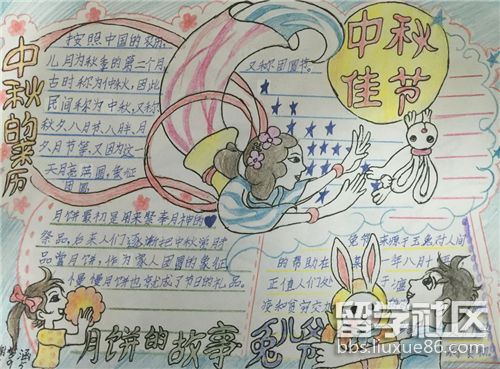 中秋佳节
中秋的来历
按照中国的农历,
八月为秋季的第二个月
古时称为仲秋,因此
民间称为中秋,又称
秋夕、八月节、八月半、月
夕、月节等,又因为这一
天月亮满圆,象征
团圆
又称团圆节。
月饼最初是用来祭奉月神的
祭品,后来人们逐渐把中秋赏月
品尝月饼,作为家人团圆的象征
慢慢月饼也就成了节日的礼品。
月饼的故事
兔儿爷
来源于玉兔对人间
的帮助在
一年八月十
正值人们
涵
留学社区
bbs.liuxue86.com